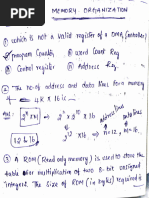 MEMORY ORGANIZATION
① which is not a valid register of a DMA controller
A) program Counter B) word Count Reg
C) Control register D) Address Reg
② The no. of address and data lines for a memory
4K X 16 is
Ans:
2^n x m 2^2 x 2^10 x 16
2^12 x 16 n=12, m=16.
12 & 16
address lines
data lines
③ A ROM (Read only memory) is used to store the
table for multiplication of two 8-bit unsigned
integers. The size of ROM (in bytes) required is